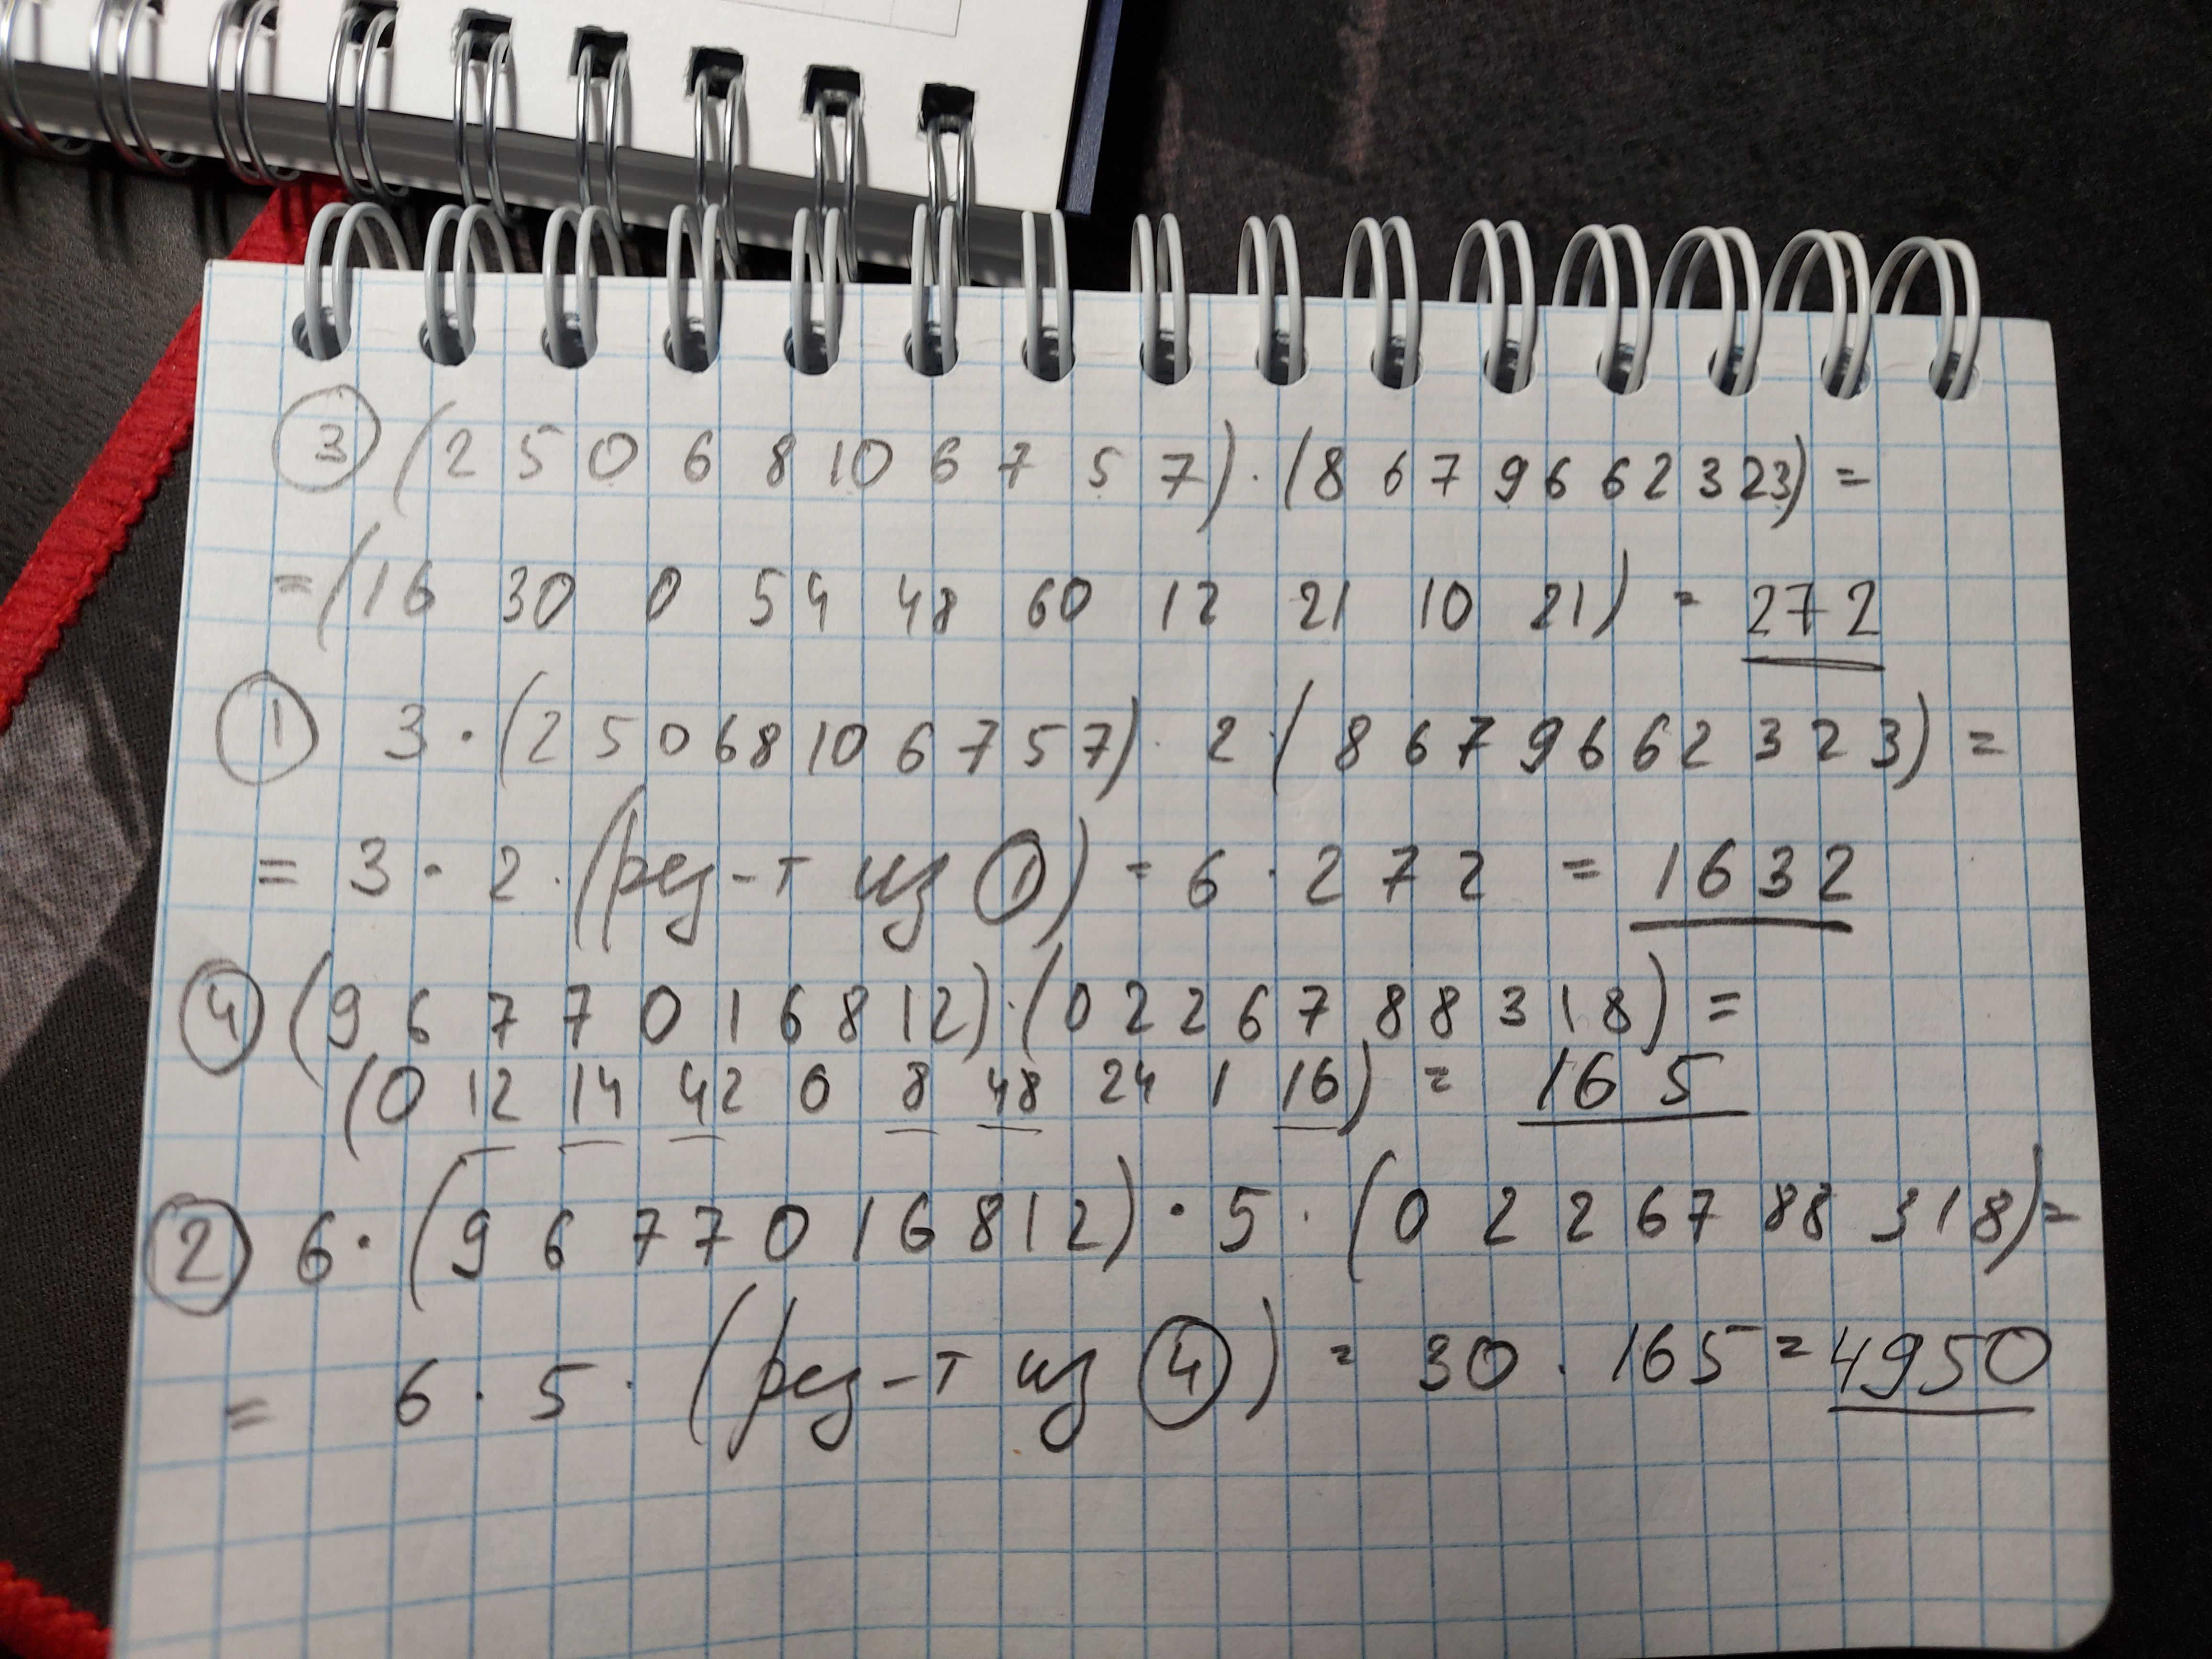 ③ (2 5 0 6 8 10 6 7 5 7) · (8 6 7 9 6 6 2 3 2 3) =
= (16 30 0 54 48 60 12 21 10 21) = 272
① 3 · (2 5 0 6 8 10 6 7 5 7) · 2 (8 6 7 9 6 6 2 3 2 3) =
= 3 · 2 · (рез-т из ①) = 6 · 272 = 1632
④ (9 6 7 7 0 1 6 8 1 2) · (0 2 2 6 7 8 8 3 1 8) =
(0 12 14 42 0 8 48 24 1 16) = 165
② 6 · (9 6 7 7 0 1 6 8 1 2) · 5 · (0 2 2 6 7 8 8 3 1 8) =
= 6 · 5 · (рез-т из ④) = 30 · 165 = 4950